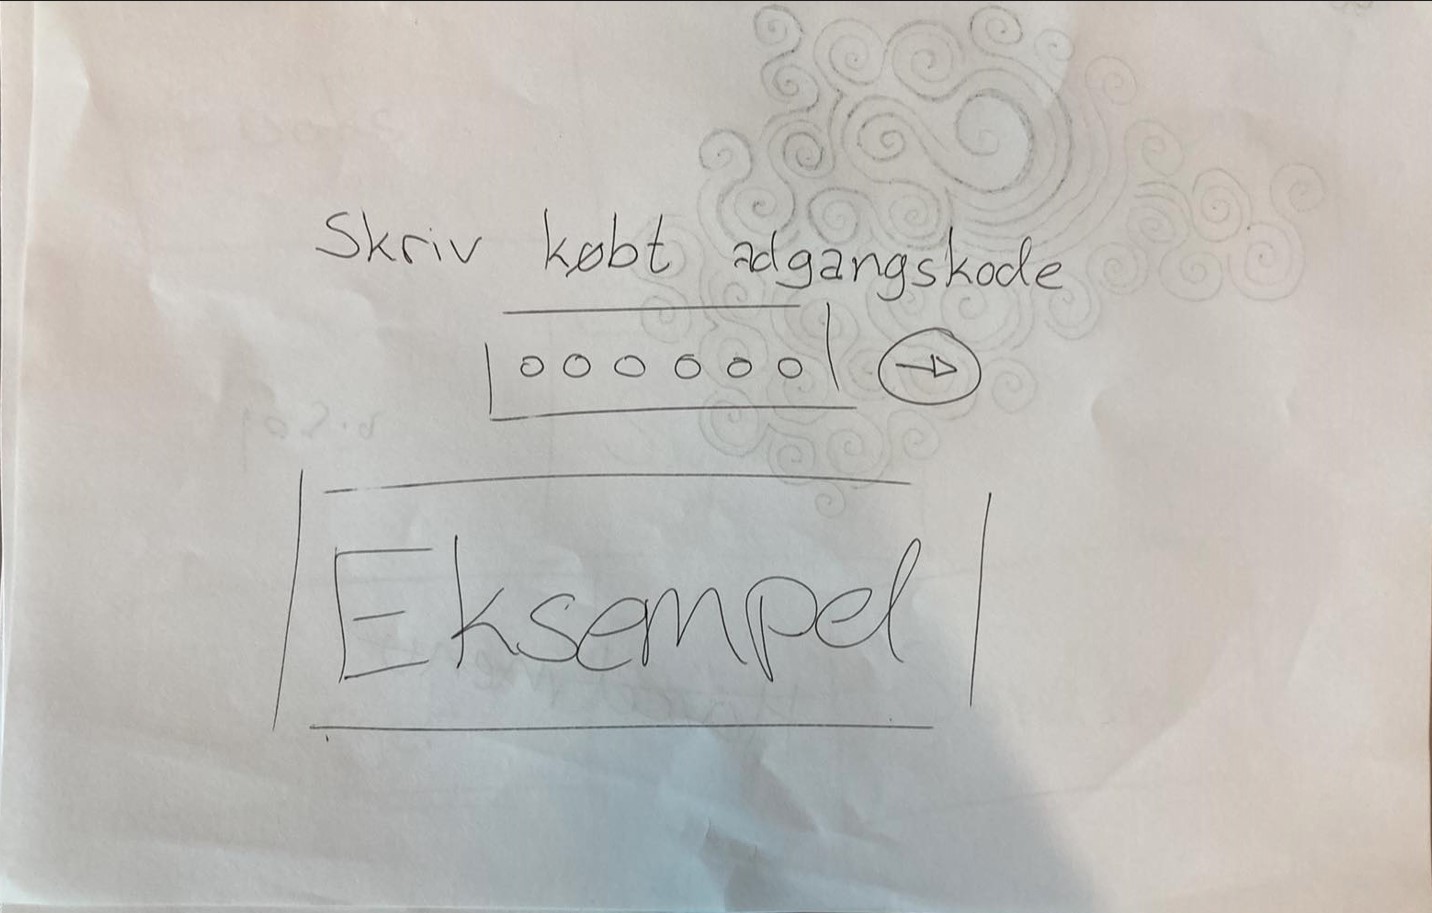 Skriv købt adgangskode
oooooo
Eksempel